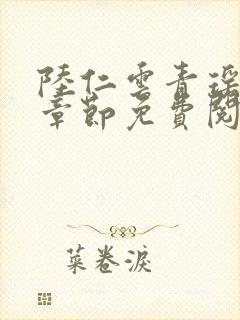 陸仁雲青瑶
章節免費閱
菜卷淚